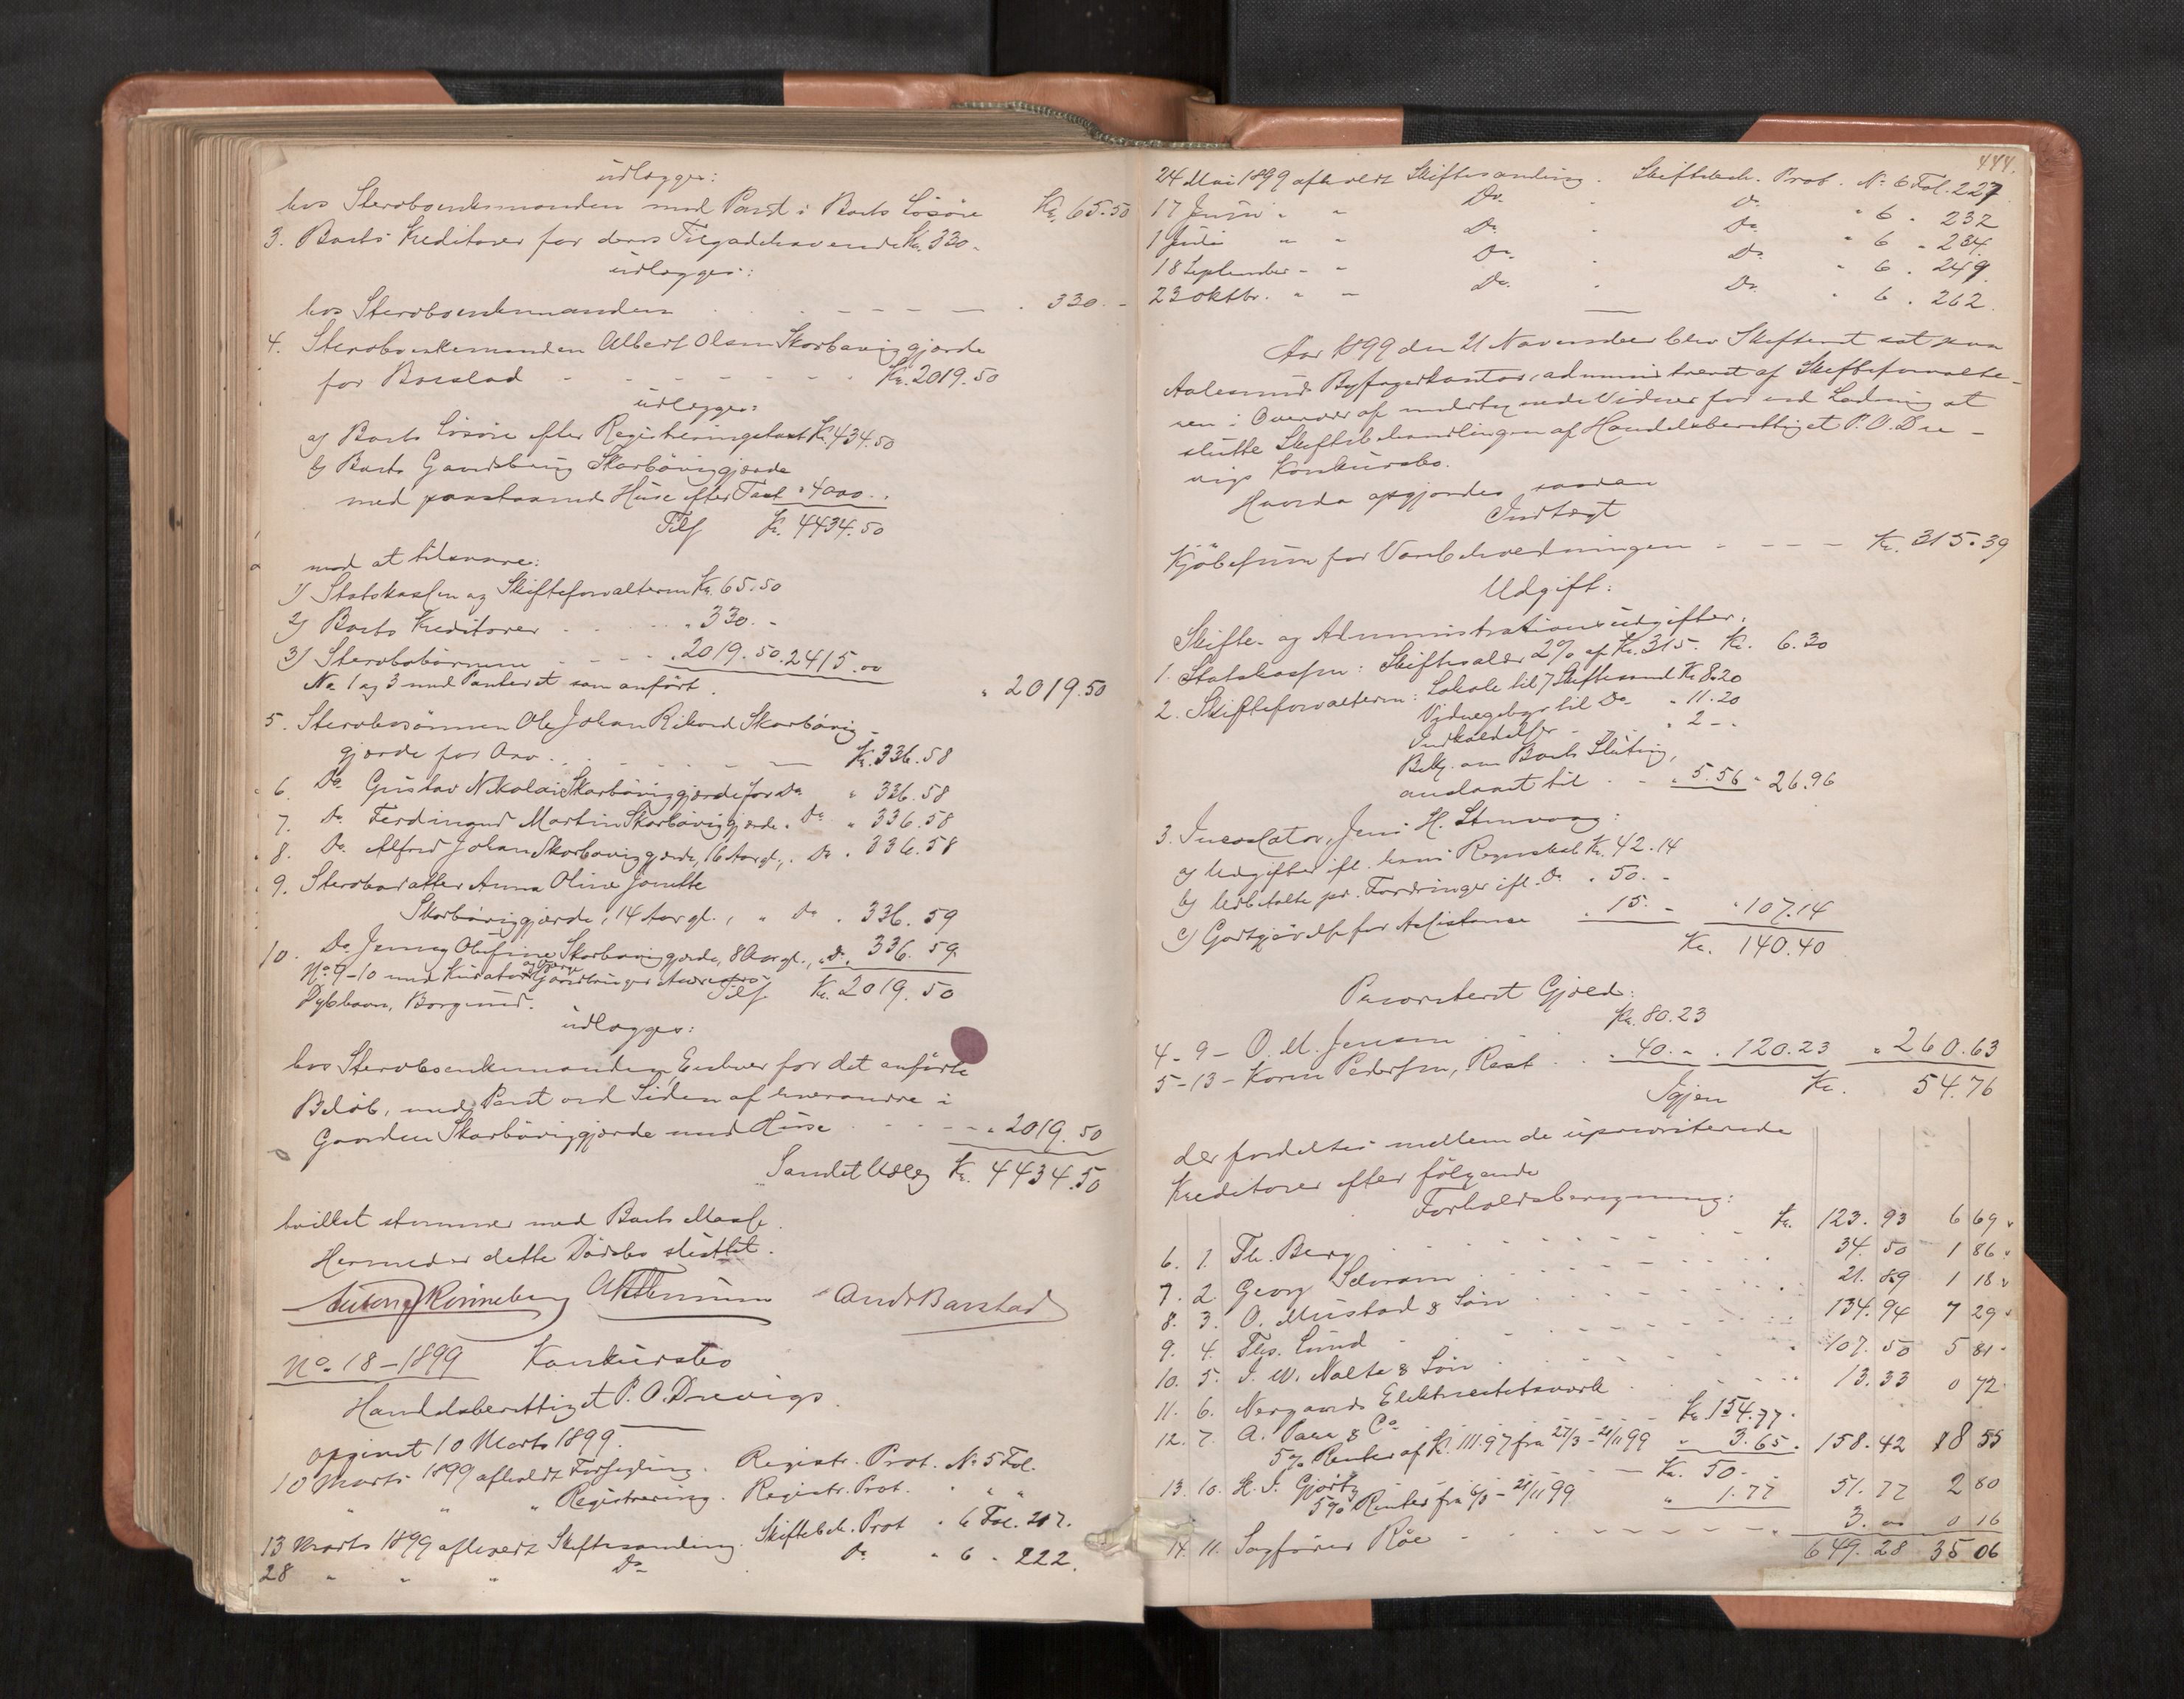 udlægges:
hos Sterboenkemanden med Pant i Boets Lösöre Kr. 65.50
3. Boets Kreditorer for deres Tilgodehavende Kr. 330.-
udlægges:
hos Sterboenkemanden . 330.-
4. Sterboenkemanden Albert Olsen Skorbøviggjærde
for Boeslod Kr. 2019.50
udlægges:
a) Boets Lösöre efter Registreringstaxt Kr. 434.50
b) Boets Gaardsbrug Skarbövikgjærde
med paastaaende Huse efter Taxt " 4000..
Tils. Kr. 4434.50
mod at tilsvare:
1) Statskassen og Skifteforvalteren Kr. 65.50
2) Boets Kreditorer " 330.-
3) Sterbobörnene " 2019.50. 2415.00
No 1 og 3 med Panteret som anfört. " 2019.50
5. Sterbosönnen Ole Johan Rikard Skarbövig-
gjærde for Arv Kr. 336.58
6. Do. Gustav Nikolai Skarböviggjærde for Do " 336.58
7. Do. Ferdinand Martin Skarböviggjærde " Do " 336.58
8. Do. Alfred Johan Skarboviggjærde, 16 Aar gl., " Do " 336.58
9. Sterbodatter Anna Oline Janette
Skarböviggjærde, 14 Aar gl., " Do " 336.59
10. Do. Jenny Olufine Skarboviggjærde, 8 Aar gl., " Do. 336.59
No 9-10 med Kurator og Værge Gaardbruger
Dybhavn, Borgund. Tils. Kr. 2019.50
udlægges:
hos Sterboenkemanden, Enhver for det anförte
Belöb, med Pant ved Siden af hverandre i
Gaarden Skarböviggjærde med Huse " 2019.50
Samlet Udlæg Kr. 4434.50
hvilket stemmer med Boets Masse.
Hermed er dette Dödsbo sluttet.
Anton Rönneberg And. Barstad
No. 18-1899 Konkursbo
Handelsberettiget P. O. Drevigs.
opgivet 10 Marts 1899.
10 Marts 1899 afholdt Forsegling. Registr. Prot. No 5 Fol.
" " " Registrering. Registr. Prot. " " "
13 Marts 1899 afholdt Skiftesamling. Skiftebeh. Prot " 6 Fol. 217.
28 " " " Do Do " 6 " 222.
444.
24 Mai 1899 afholdt Skiftesamling. Skiftebeh. Prot. No 6 Fol. 227
17 Juni " " Do. " Do " 6 " 232
1 Juli " " Do. " Do " 6 " 234.
18 September " " Do. " Do. " 6 . 249
23 Oktbr. " " Do. " Do. " 6 . 262.
Aar 1899 den 21 November blev Skifteret sat paa
Aalesunds Byfogedkontor, administreret af Skifteforvalte-
ren i Overvær af undertegnede Vidner for ved Lodning at
slutte Skiftebehandlingen af Handelsberettiget P. O. Dre-
vigs Konkursbo.
Hvorda opgjordes saadan
Indtægt
Kjöbesum for Varebeholdningen Kr. 315.39
Udgift:
Skifte- og Administrationsudgifter:
1. Statskassen: Skiftesalær 2% af Kr. 315. Kr. 6.30
2. Skifteforvalteren: Lokale til 7 Skiftesaml Kr 8.20
Vidnegebyr til Do " 11.20
Indkaldelser " 2-.
Bekj. om Boets Slutning,
anslaaet til " 5.56 " 26.96
3. Incaslator, Jens H. Stenvaag:
a) Udgifter ifl. hans Regnskab Kr. 42.14
b) Udbetalte pr. Fordringer ifl. Do " 50.-
c) Godtgjörelse for Assistance " 15.- " 107.14
Kr. 140.40
Prioriteret Gjæld:
4 - 9 - O. M. Jensen Kr. 80.23
5 - 13 - Karen Pedersen, Rest " 40.- " 120.23 " 260.63
Igjen Kr. 54.76
der fordeltes mellem de uprioriterede
Kreditorer efter følgende
Forholdsberegning:
6. 1. Th. Berg Kr. 123.93 6 69
7. 2. Georg Schram 34.50 1 86
8. 3. O. Mustad & Sön 21.89 1 18
9. 4. Ths. Lund 134.94 7 29
10. 5. J. W. Nalte & Sön 107.50 5 81
11. 6. Nergaards Elektricitetsværk 13.33 0 72
12. 7. A. Paus & Co Kr. 154.77.
5% Renter af Kr. 111.97 fra 27/3 - 21/11 99 " 3.65. 158.42 8 55
13. 10. H. J. Gjørtz Kr. 50.-
5% Renter fra 6/3 - 21/11 99 " 1.77 51.77 2 80
14. 11. Sagförer Röe 3.00 0 16
649.28 35 06